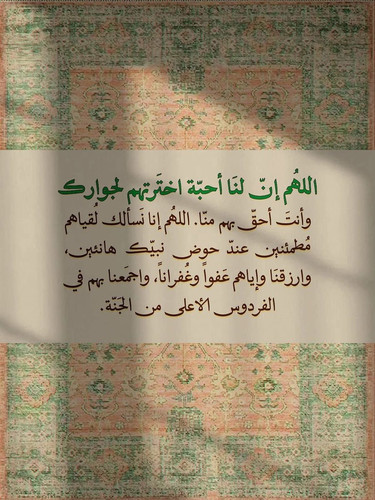 اللهُم إنّ لنَا أحبّة اختَرتهم لجوارك
وأنتَ أحقّ بهم منّا. اللهُم إنا نَسألك لُقياهم
مُطمئنين عندّ حوض نبيّك هانئين،
وارزقنَا وإياهم عَفواً وغُفراناً، واجمَعنا بهم في
الفردوس الأعلى من الجَنّة.